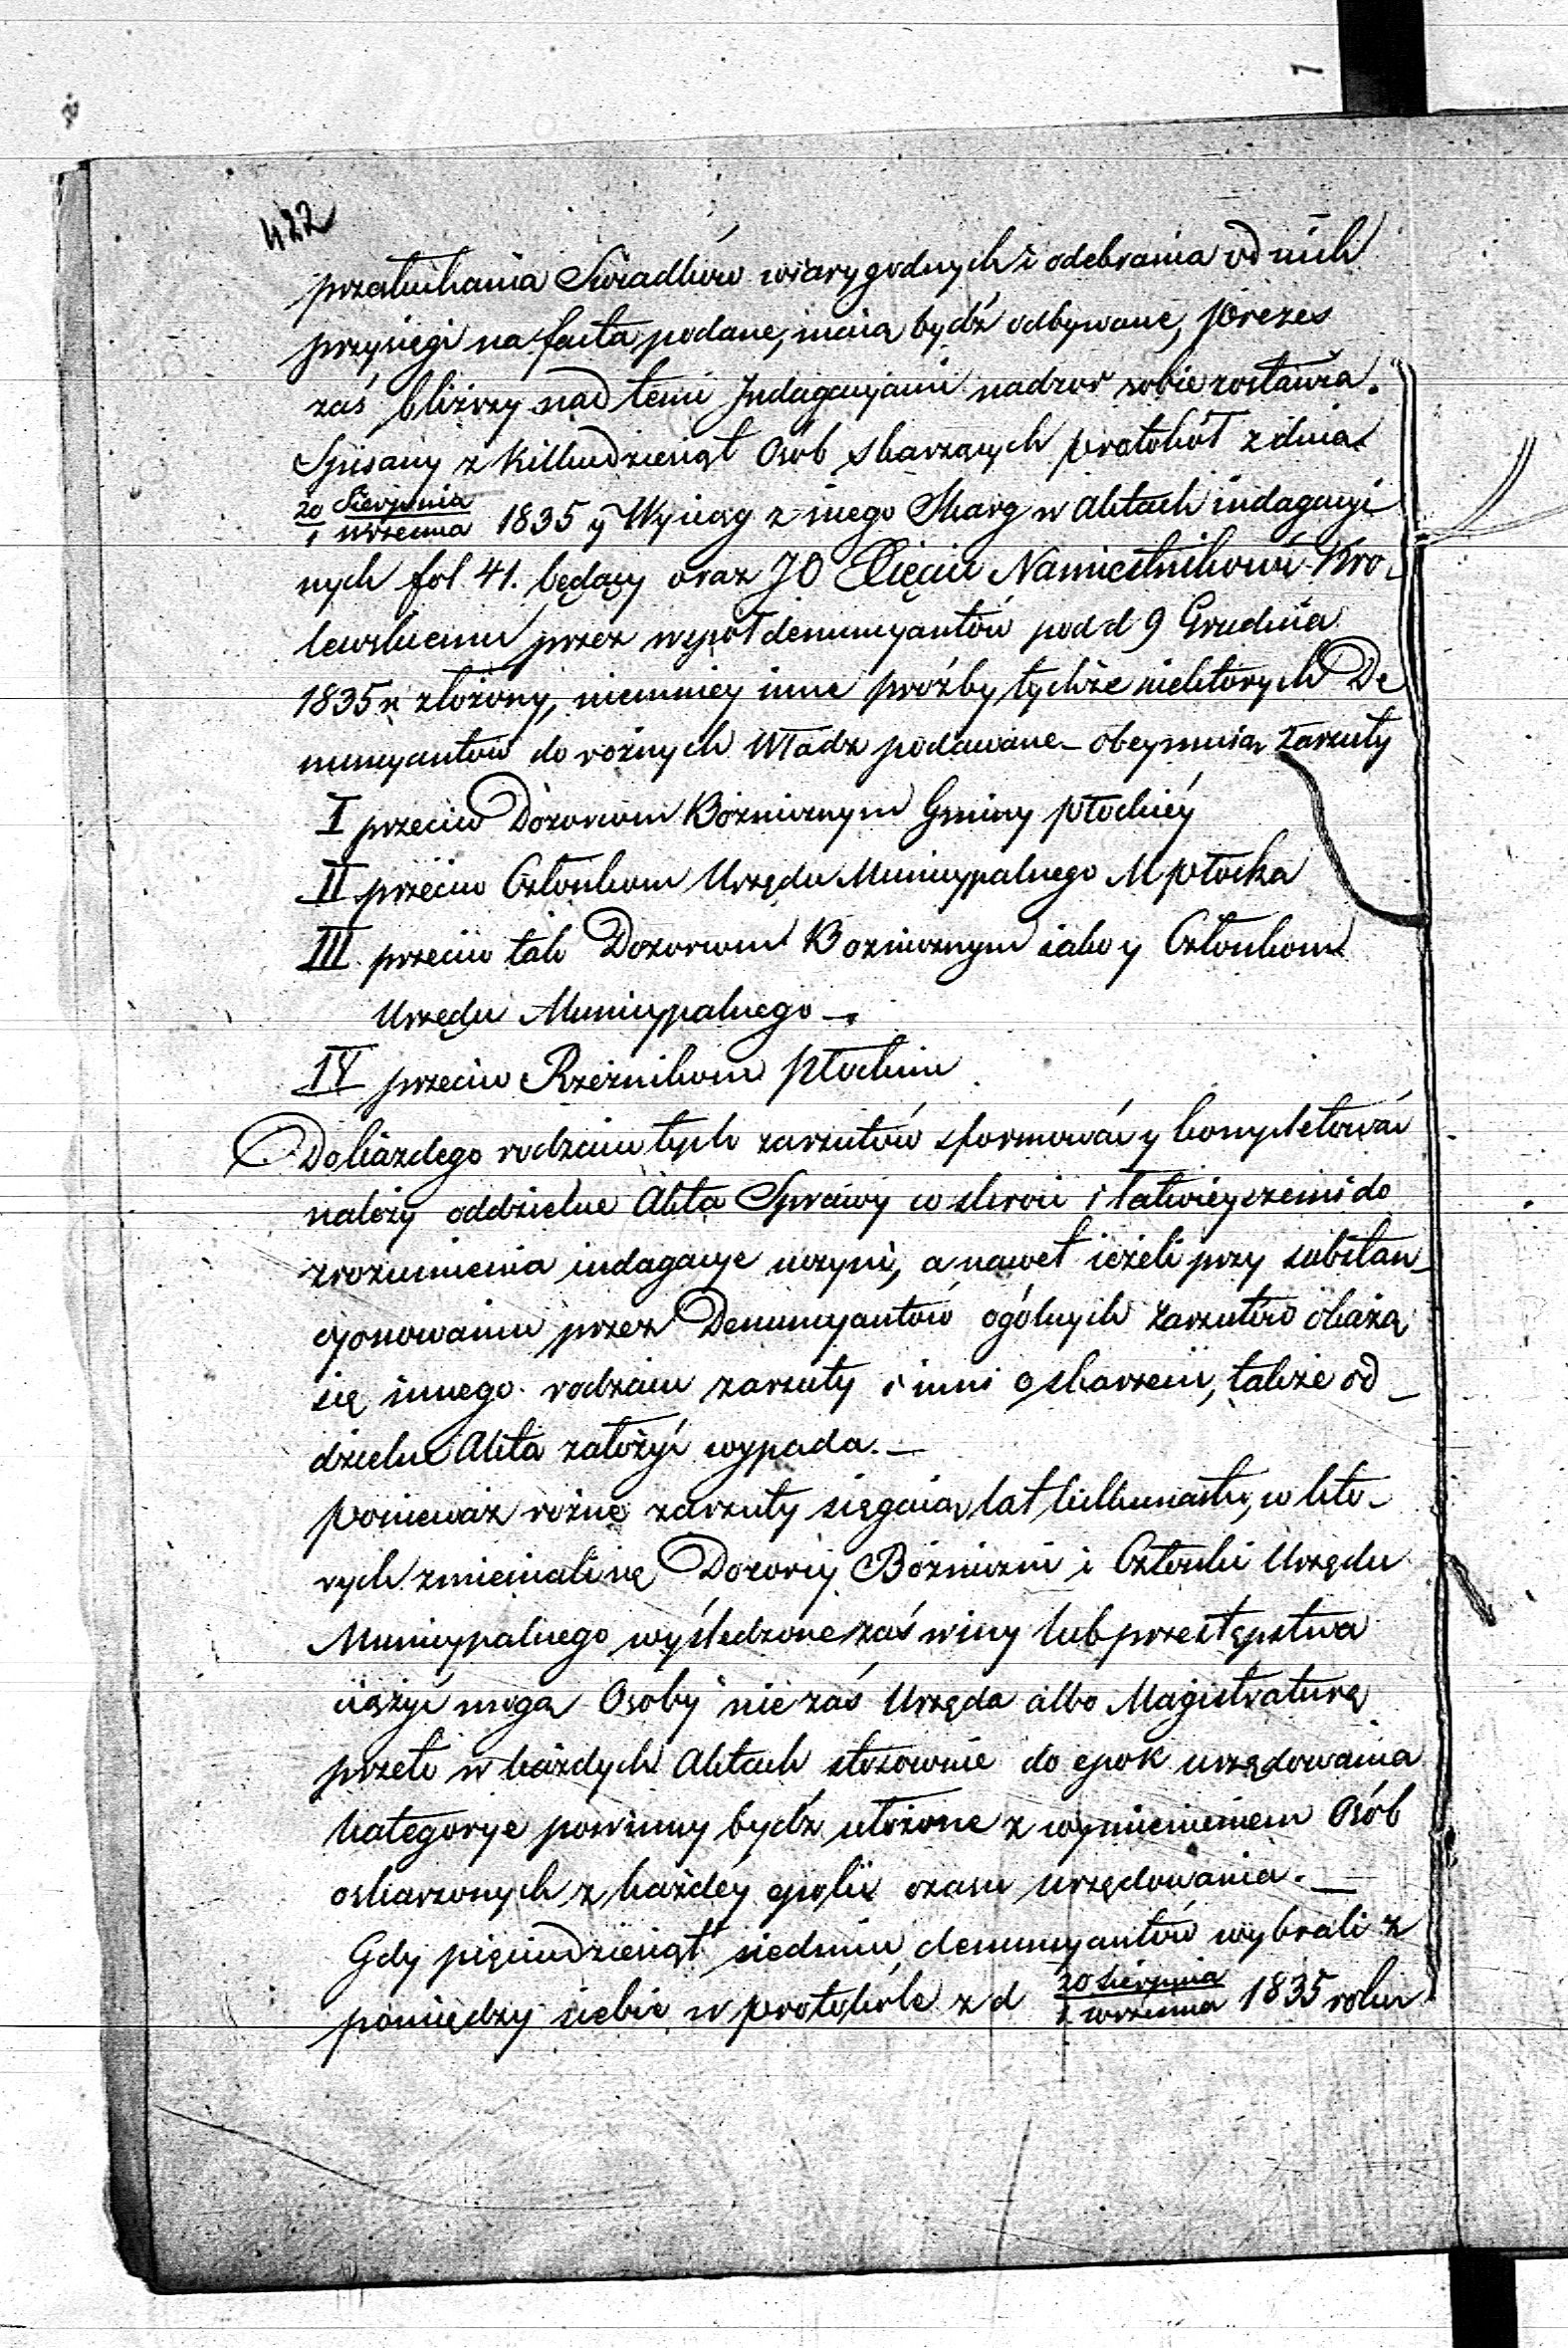 422
przesłuchania Swiadków wiarygodnych i odebrania od nich
przysięgi na facta podane, maią bydź odbywane, Prezes
zaś bliższy nad temi Indagacyjami nadzor sobie zostawia.
Spisany z Kilkudziesiąt Osób skarzących protokół z dnia
20 Sierpnia
1 Września 1835 y Wyciąg z niego Skarg w Aktach indagacyi
nych fol. 41. będący oraz JO Xięciu Namiestnikowi Kro-
lewskiemu przez współdenuncyantów pod d 9 Grudnia
1835 r. złożony, niemniey inne proźby tychże niektorych De
nuncyantów do rożnych Władz podawane – obeymuią zarzuty
I przeciw Dozorcom Bożnicznym Gminy Płockiéy
II przeciw Członkom Urzędu Municypalnego M Płocka
III. przeciw tak Dozorcom Bożnicznym iako y Członkom
Urzędu Municypalnego –
IV przeciw Rzeźnikom Płockim
Do każdego rodzaiu tych zarzutów sformować y kompletować
należy oddzielne Akta Sprawy co skróci i łatwieyszemi do
zrozumienia indagacye uczyni, a nawet ieżeli przy substan-
cyonowaniu przez Denuncyantów ogólnych zarzutów okażą
się innego rodzaiu zarzuty i inni oskarżeni, także od-
dzielne Akta założyć wypada. –
Ponieważ rożne zarzuty sięgaią lat kilkunastu, w kto-
rych zmieniali się Dozorcy Bóżniczni i Członki Urzędu
Municypalnego wyśledzone zaś winy lub przestępstwa
ciążyć mogą Osoby nie zaś Urzęda albo Magistraturę
przeto w każdych Aktach stosownie do epok urzędowania
kategorye powinny bydź ułożone z wymienieniem Osób
oskarzonych z każdéy epoki czasu urzędowania. –
Gdy pięciudziesiąt siedmiu denuncyantów wybrali z
pomiędzy siebie w protokóle z d 20 Sierpnia
1 września 1835 roku